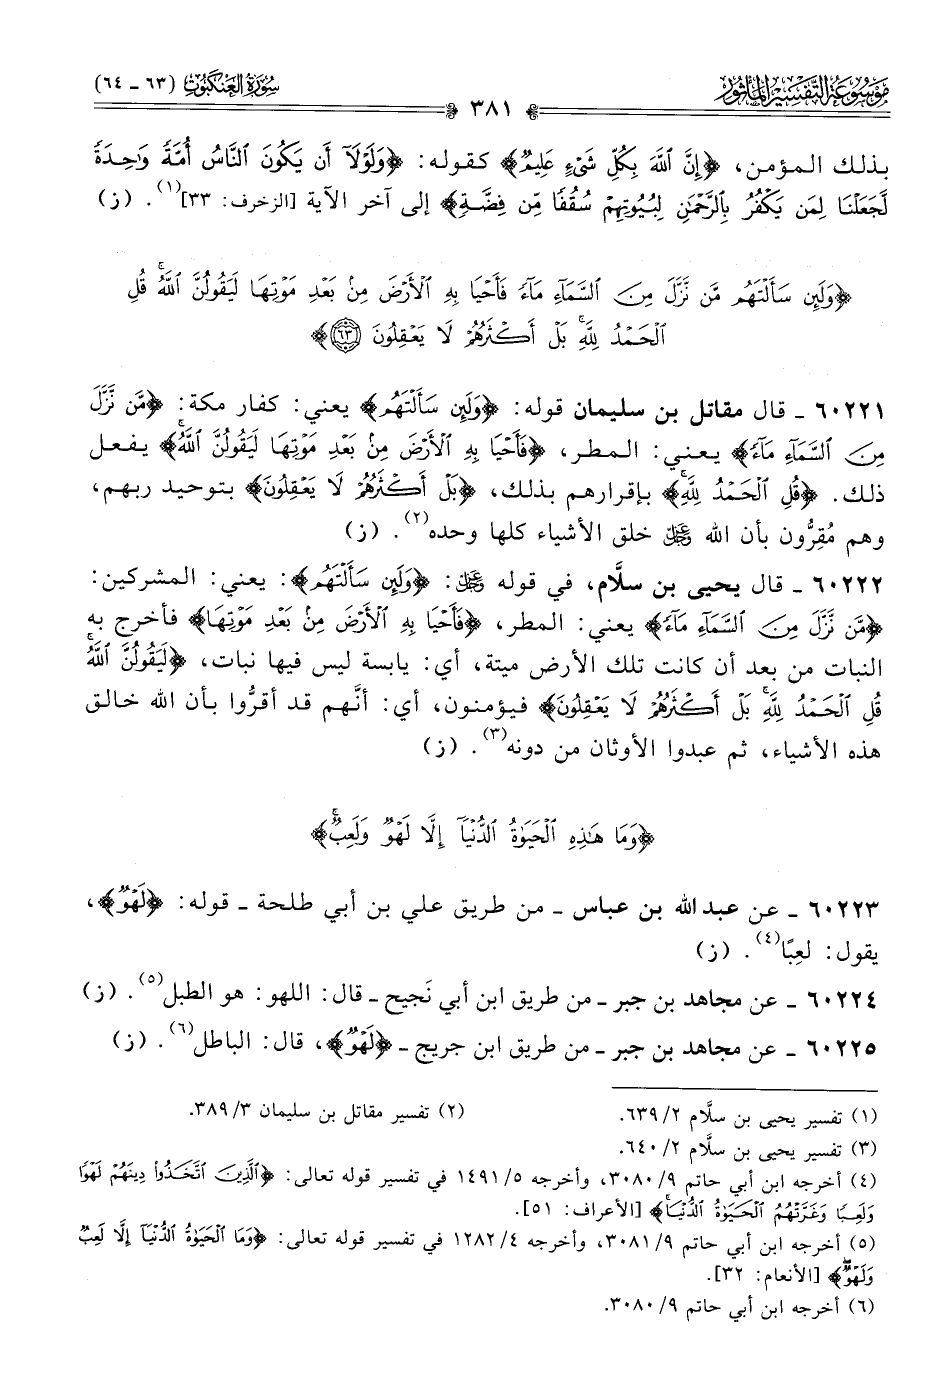 مَوْسُوعَةُ التَّفْسِيرِ المَأْثُور
سُورَةُ العَنكَبُوت (٦٣ - ٦٤)
٣٨١
بذلك المؤمن، ﴿إِنَّ اللَّهَ بِكُلِّ شَيْءٍ عَلِيمٌ﴾ كقوله: ﴿وَلَوْلَا أَن يَكُونَ النَّاسُ أُمَّةً وَاحِدَةً
لَجَعَلْنَا لِمَن يَكْفُرُ بِالرَّحْمَٰنِ لِبُيُوتِهِمْ سُقُفًا مِّن فِضَّةٍ﴾ إلى آخر الآية [الزخرف: ٣٣](١). (ز)
﴿وَلَئِن سَأَلْتَهُم مَّن نَّزَّلَ مِنَ السَّمَاءِ مَاءً فَأَحْيَا بِهِ الْأَرْضَ مِنْ بَعْدِ مَوْتِهَا لَيَقُولُنَّ اللَّهُ ۚ قُلِ
الْحَمْدُ لِلَّهِ ۚ بَلْ أَكْثَرُهُمْ لَا يَعْقِلُونَ ٦٣﴾
٦٠٢٢١ - قال مقاتل بن سليمان قوله: ﴿وَلَئِن سَأَلْتَهُم﴾ يعني: كفار مكة: ﴿مَّن نَّزَّلَ
مِنَ السَّمَاءِ مَاءً﴾ يعني: المطر، ﴿فَأَحْيَا بِهِ الْأَرْضَ مِنْ بَعْدِ مَوْتِهَا لَيَقُولُنَّ اللَّهُ ۚ﴾ يفعل
ذلك. ﴿قُلِ الْحَمْدُ لِلَّهِ ۚ﴾ بإقرارهم بذلك، ﴿بَلْ أَكْثَرُهُمْ لَا يَعْقِلُونَ﴾ بتوحيد ربهم،
وهم مُقِرُّون بأن الله ﷿ خلق الأشياء كلها وحده(٢). (ز)
٦٠٢٢٢ - قال يحيى بن سلَّام، في قوله ﷿: ﴿وَلَئِن سَأَلْتَهُم﴾: يعني: المشركين:
﴿مَّن نَّزَّلَ مِنَ السَّمَاءِ مَاءً﴾ يعني: المطر، ﴿فَأَحْيَا بِهِ الْأَرْضَ مِنْ بَعْدِ مَوْتِهَا﴾ فأخرج به
النبات من بعد أن كانت تلك الأرض ميتة، أي: يابسة ليس فيها نبات، ﴿لَيَقُولُنَّ اللَّهُ ۚ
قُلِ الْحَمْدُ لِلَّهِ ۚ بَلْ أَكْثَرُهُمْ لَا يَعْقِلُونَ﴾ فيؤمنون، أي: أنَّهم قد أقرُّوا بأن الله خالق
هذه الأشياء، ثم عبدوا الأوثان من دونه(٣). (ز)
﴿وَمَا هَٰذِهِ الْحَيَوٰةُ الدُّنْيَا إِلَّا لَهْوٌ وَلَعِبٌ ۚ﴾
٦٠٢٢٣ - عن عبد الله بن عباس - من طريق علي بن أبي طلحة - قوله: ﴿لَهْوٌ﴾،
يقول: لعِبًا(٤). (ز)
٦٠٢٢٤ - عن مجاهد بن جبر - من طريق ابن أبي نَجيح - قال: اللهو: هو الطبل(٥). (ز)
٦٠٢٢٥ - عن مجاهد بن جبر - من طريق ابن جريج - ﴿لَهْوٌ﴾، قال: الباطل(٦). (ز)
(١) تفسير يحيى بن سلَّام ٢/ ٦٣٩. (٢) تفسير مقاتل بن سليمان ٣/ ٣٨٩.
(٣) تفسير يحيى بن سلَّام ٢/ ٦٤٠.
(٤) أخرجه ابن أبي حاتم ٩/ ٣٠٨٠، وأخرجه ٥/ ١٤٩١ في تفسير قوله تعالى: ﴿الَّذِينَ اتَّخَذُوا دِينَهُمْ لَهْوًا
وَلَعِبًا وَغَرَّتْهُمُ الْحَيَوٰةُ الدُّنْيَا ۚ﴾ [الأعراف: ٥١].
(٥) أخرجه ابن أبي حاتم ٩/ ٣٠٨١، وأخرجه ٤/ ١٢٨٢ في تفسير قوله تعالى: ﴿وَمَا الْحَيَوٰةُ الدُّنْيَا إِلَّا لَعِبٌ
وَلَهْوٌ ۖ﴾ [الأنعام: ٣٢].
(٦) أخرجه ابن أبي حاتم ٩/ ٣٠٨٠.